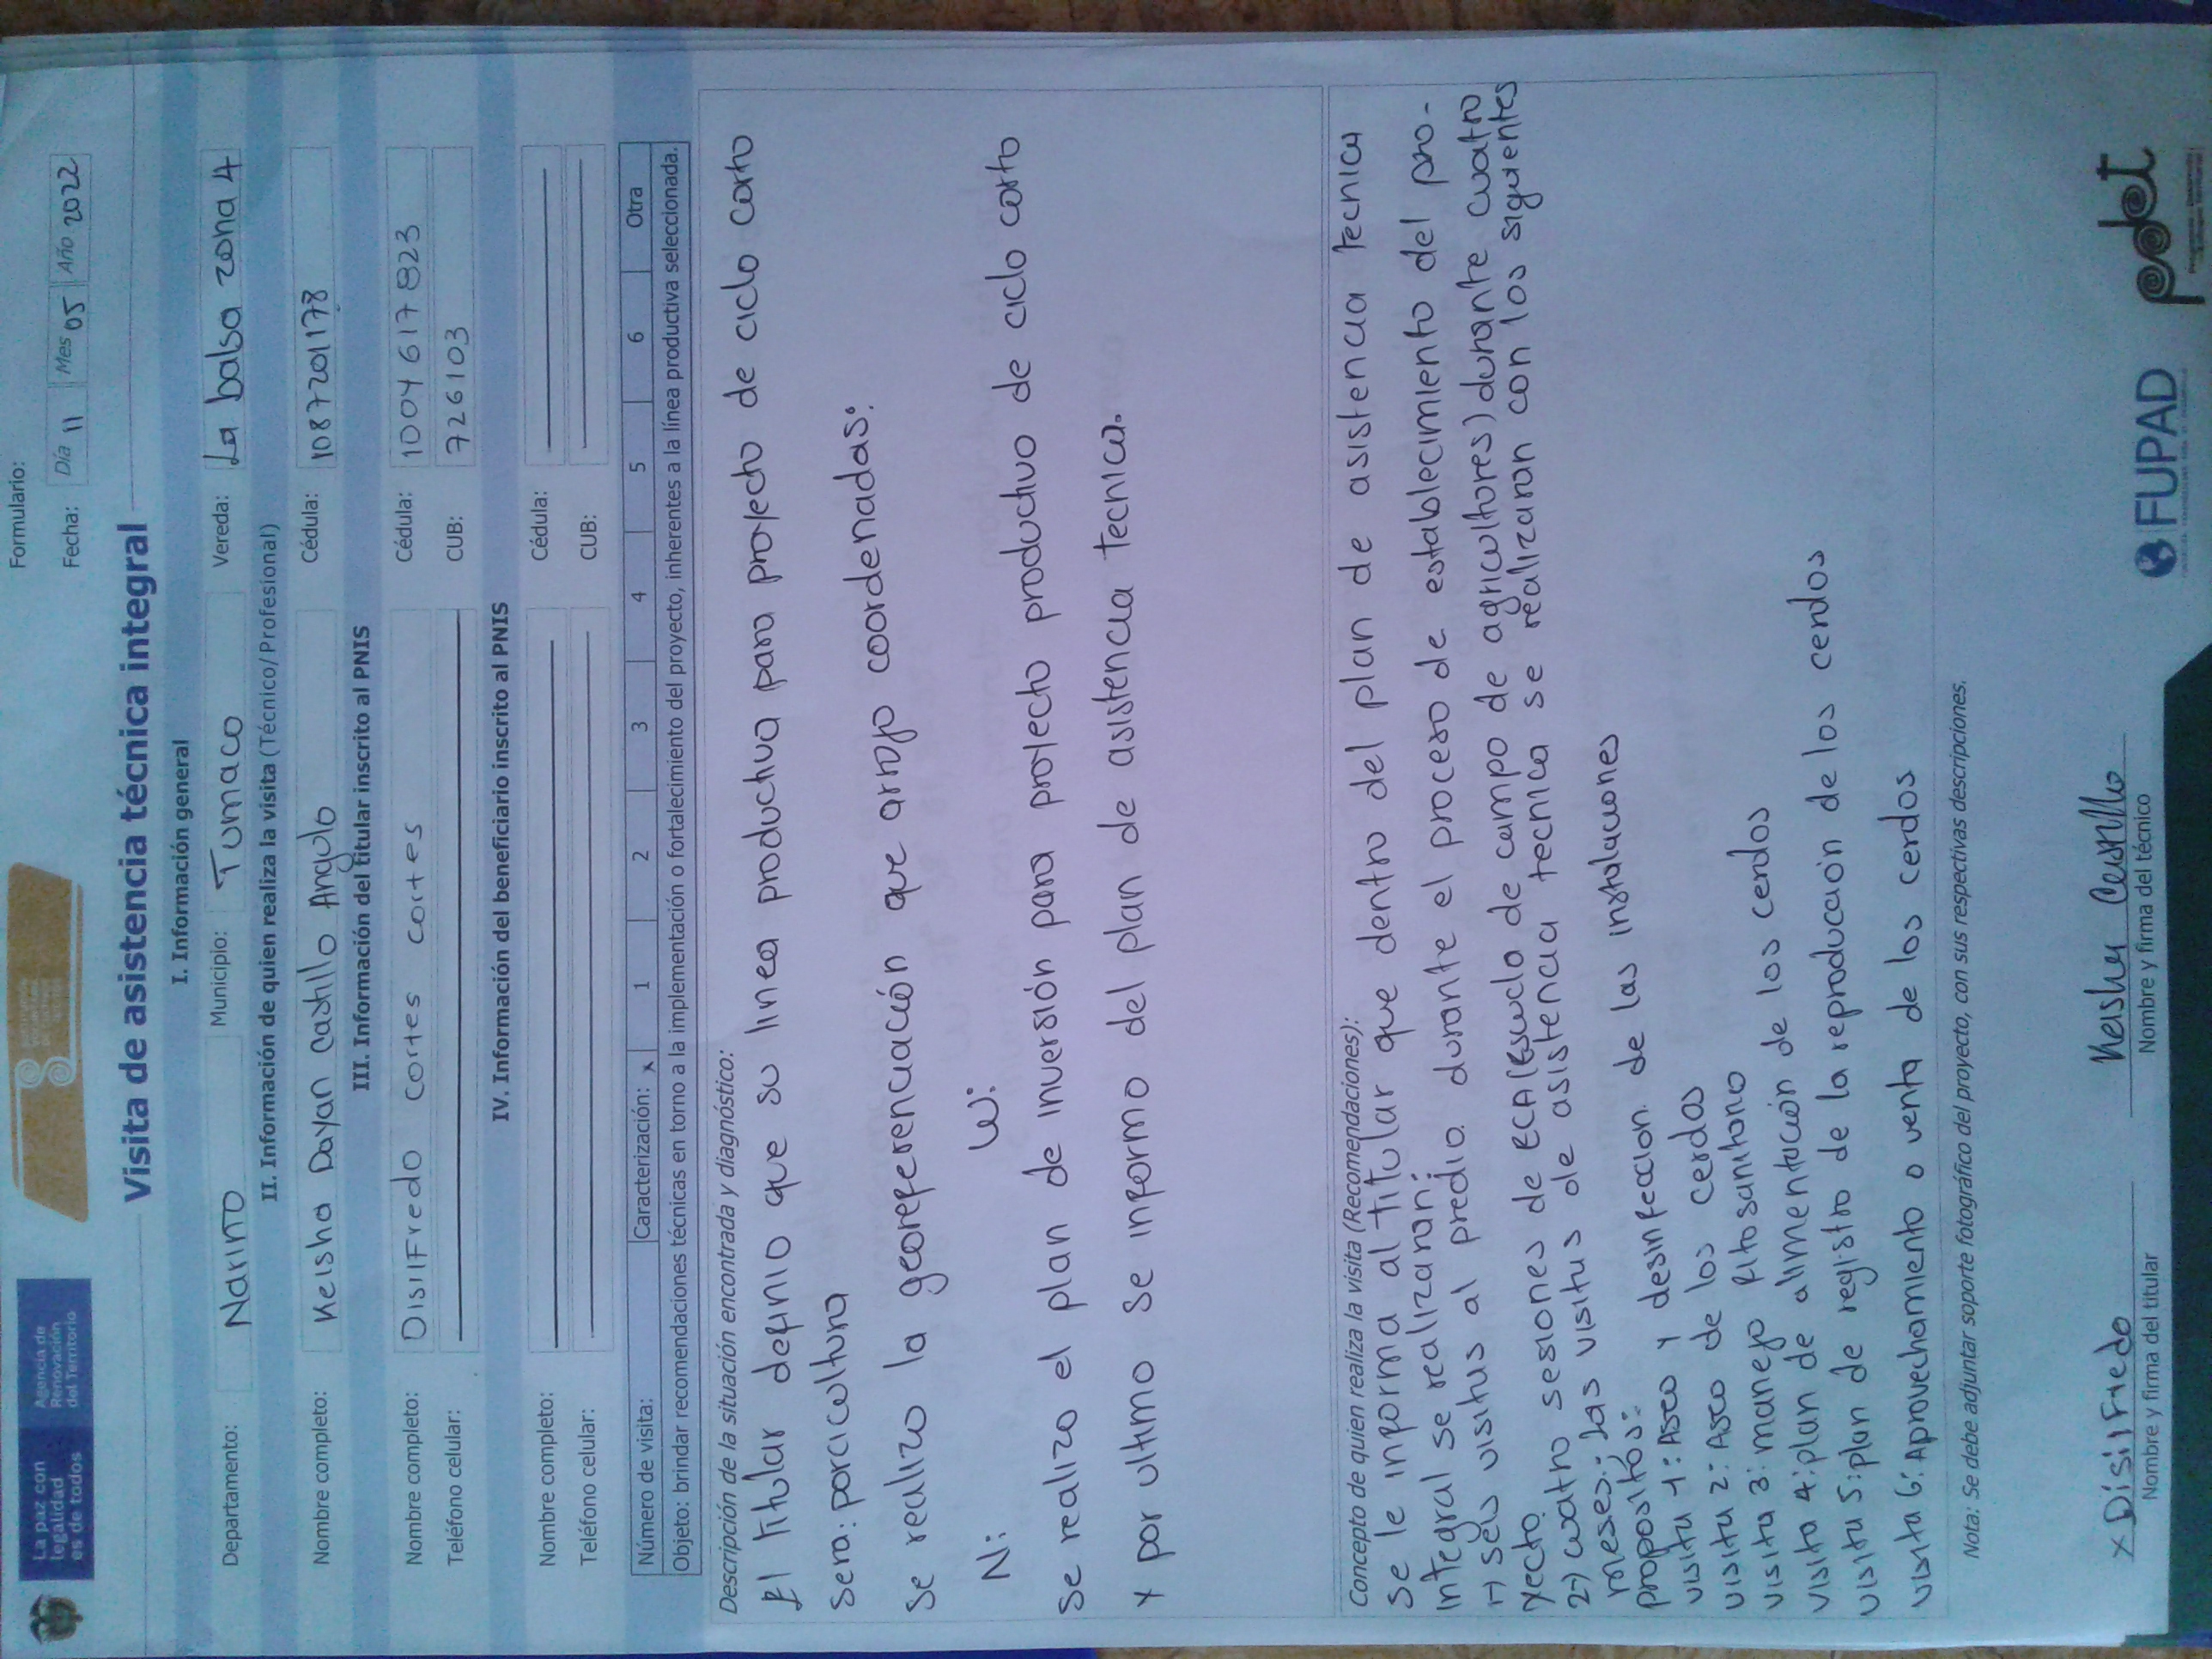 La paz con
legalidad
es de todos
Agencia de
Renovación
del Territorio
Formulario:
Fecha: Día 11 Mes 05 Año 2022
Visita de asistencia técnica integral
I. Información general
Departamento: Narino Municipio: Tumaco Vereda: La balsa zona 4
II. Información de quien realiza la visita (Técnico/Profesional)
Nombre completo: Keisha Dayan Castillo Angulo Cédula: 1087201178
III. Información del titular inscrito al PNIS
Nombre completo: DisilFredo cortes cortes Cédula: 1004617823
Teléfono celular: CUB: 726103
IV. Información del beneficiario inscrito al PNIS
Nombre completo: Cédula:
Teléfono celular: CUB:
Número de visita: Caracterización: x 1 2 3 4 5 6 Otra
Objeto: brindar recomendaciones técnicas en torno a la implementación o fortalecimiento del proyecto, inherentes a la línea productiva seleccionada.
Descripción de la situación encontrada y diagnóstico:
El titular definio que su linea productiva para proyecto de ciclo corto
sera: porcicultura
se realizo la georeferenciación que arrojo coordenadas:
N: W:
se realizo el plan de inversión para proyecto productivo de ciclo corto
y por ultimo se informo del plan de asistencia tecnica.
Concepto de quien realiza la visita (Recomendaciones):
se le informa al titular que dentro del plan de asistencia tecnica
integral se realizaran:
1-) seis visitas al predio durante el proceso de establecimiento del pro-
yecto.
2-) cuatro sesiones de ECA (Escuela de campo de agricultores) durante cuatro
meses: Las visitas de asistencia tecnica se realizaran con los siguientes
propositos:
visita 1: Aseo y desinfeccion de las instalaciones
visita 2: Aseo de los cerdos
visita 3: manejo fitosanitario
visita 4: plan de alimentación de los cerdos
visita 5: plan de registro de la reproducción de los cerdos
visita 6: Aprovechamiento o venta de los cerdos
Nota: Se debe adjuntar soporte fotográfico del proyecto, con sus respectivas descripciones.
x Disilfredo
Nombre y firma del titular
Keisha Castillo
Nombre y firma del técnico
FUPAD
pdet